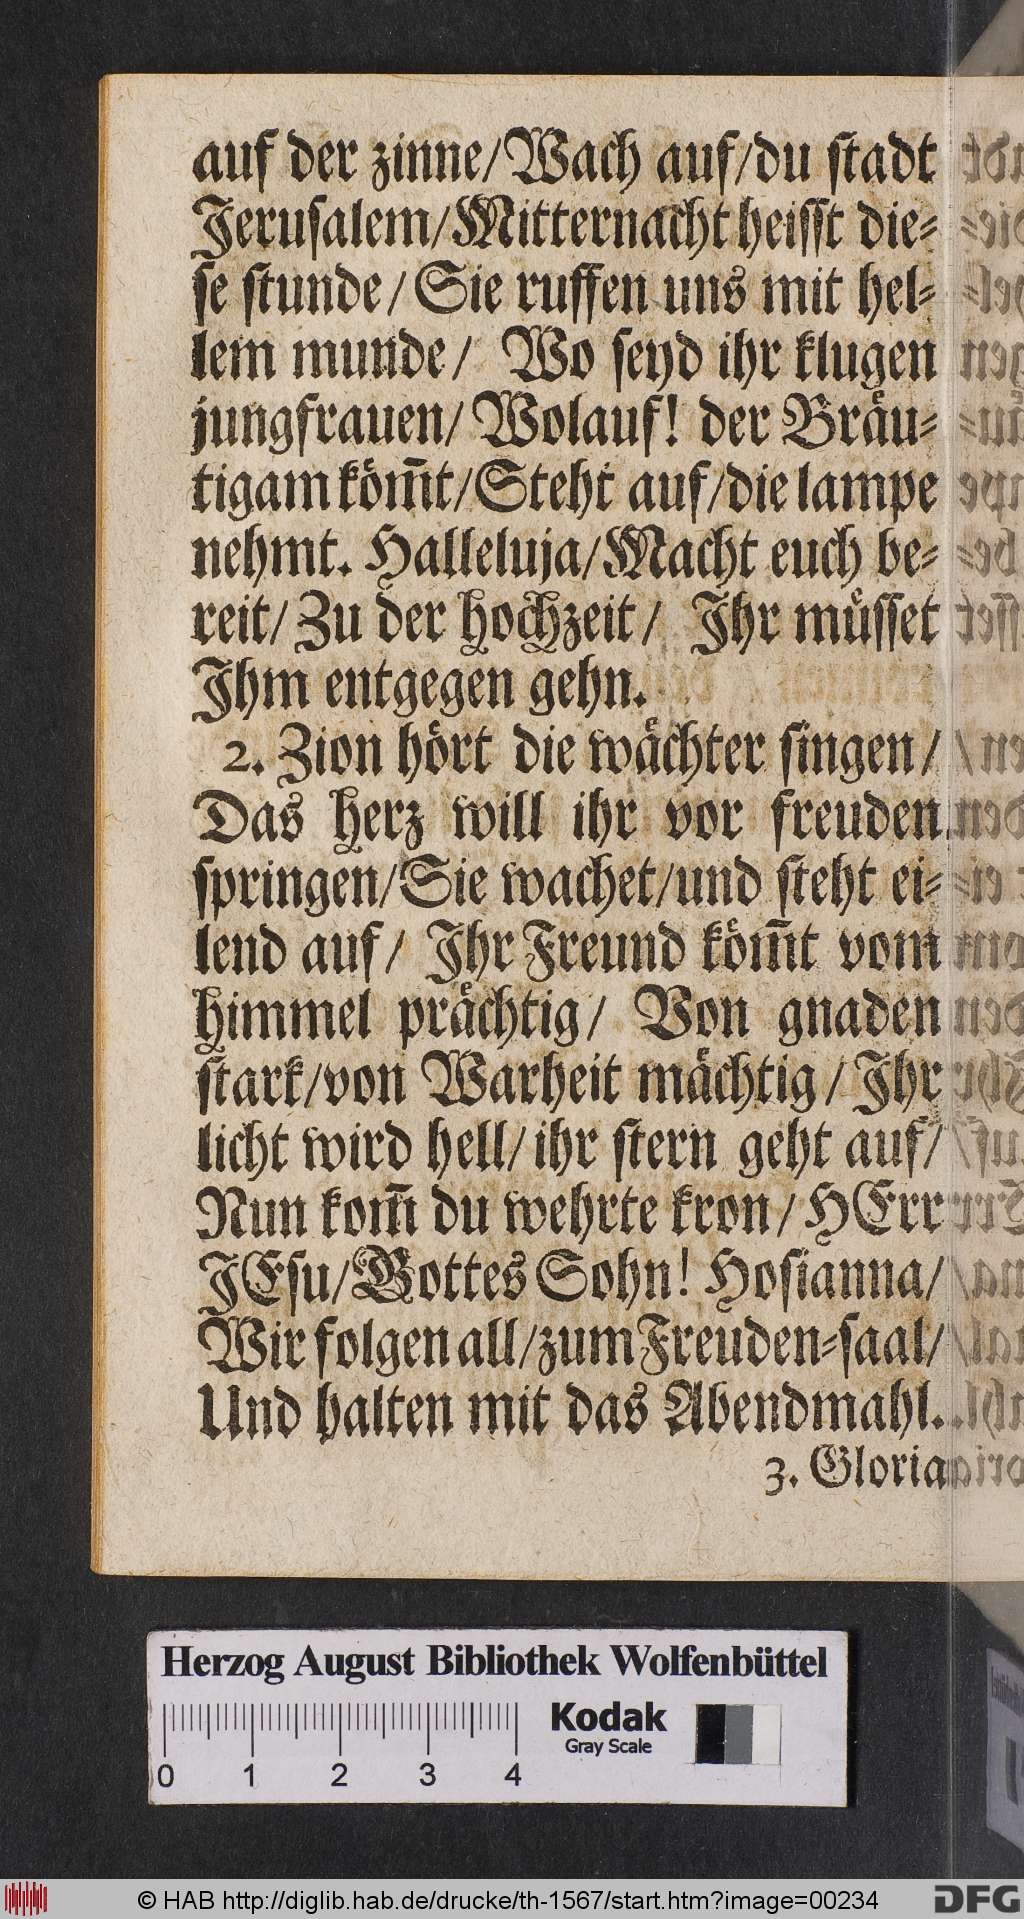 auf der zinne/Wach auf/du stadt
Jerusalem/Mitternacht heisst die-
se stunde/Sie ruffen uns mit hel-
lem munde/ Wo seyd ihr klugen
jungfrauen/Wolauf! der Bräu-
tigam köm̄t/Steht auf/die lampe
nehmt. Halleluja/Macht euch be-
reit/Zu der hochzeit/ Ihr müsset
Ihm entgegen gehn.
2. Zion hört die wächter singen/
Das herz will ihr vor freuden
springen/Sie wachet/und steht ei-
lend auf/ Ihr Freund köm̄t vom
himmel prächtig/ Von gnaden
stark/von Warheit mächtig/Ihr
licht wird hell/ihr stern geht auf/
Nun kom̄ du wehrte kron/HErr
JEsu/Gottes Sohn! Hosianna/
Wir folgen all/zum Freuden-saal/
Und halten mit das Abendmahl.
3. Gloria
Herzog August Bibliothek Wolfenbüttel
Kodak
Gray Scale
0 1 2 3 4
© HAB http://diglib.hab.de/drucke/th-1567/start.htm?image=00234
DFG